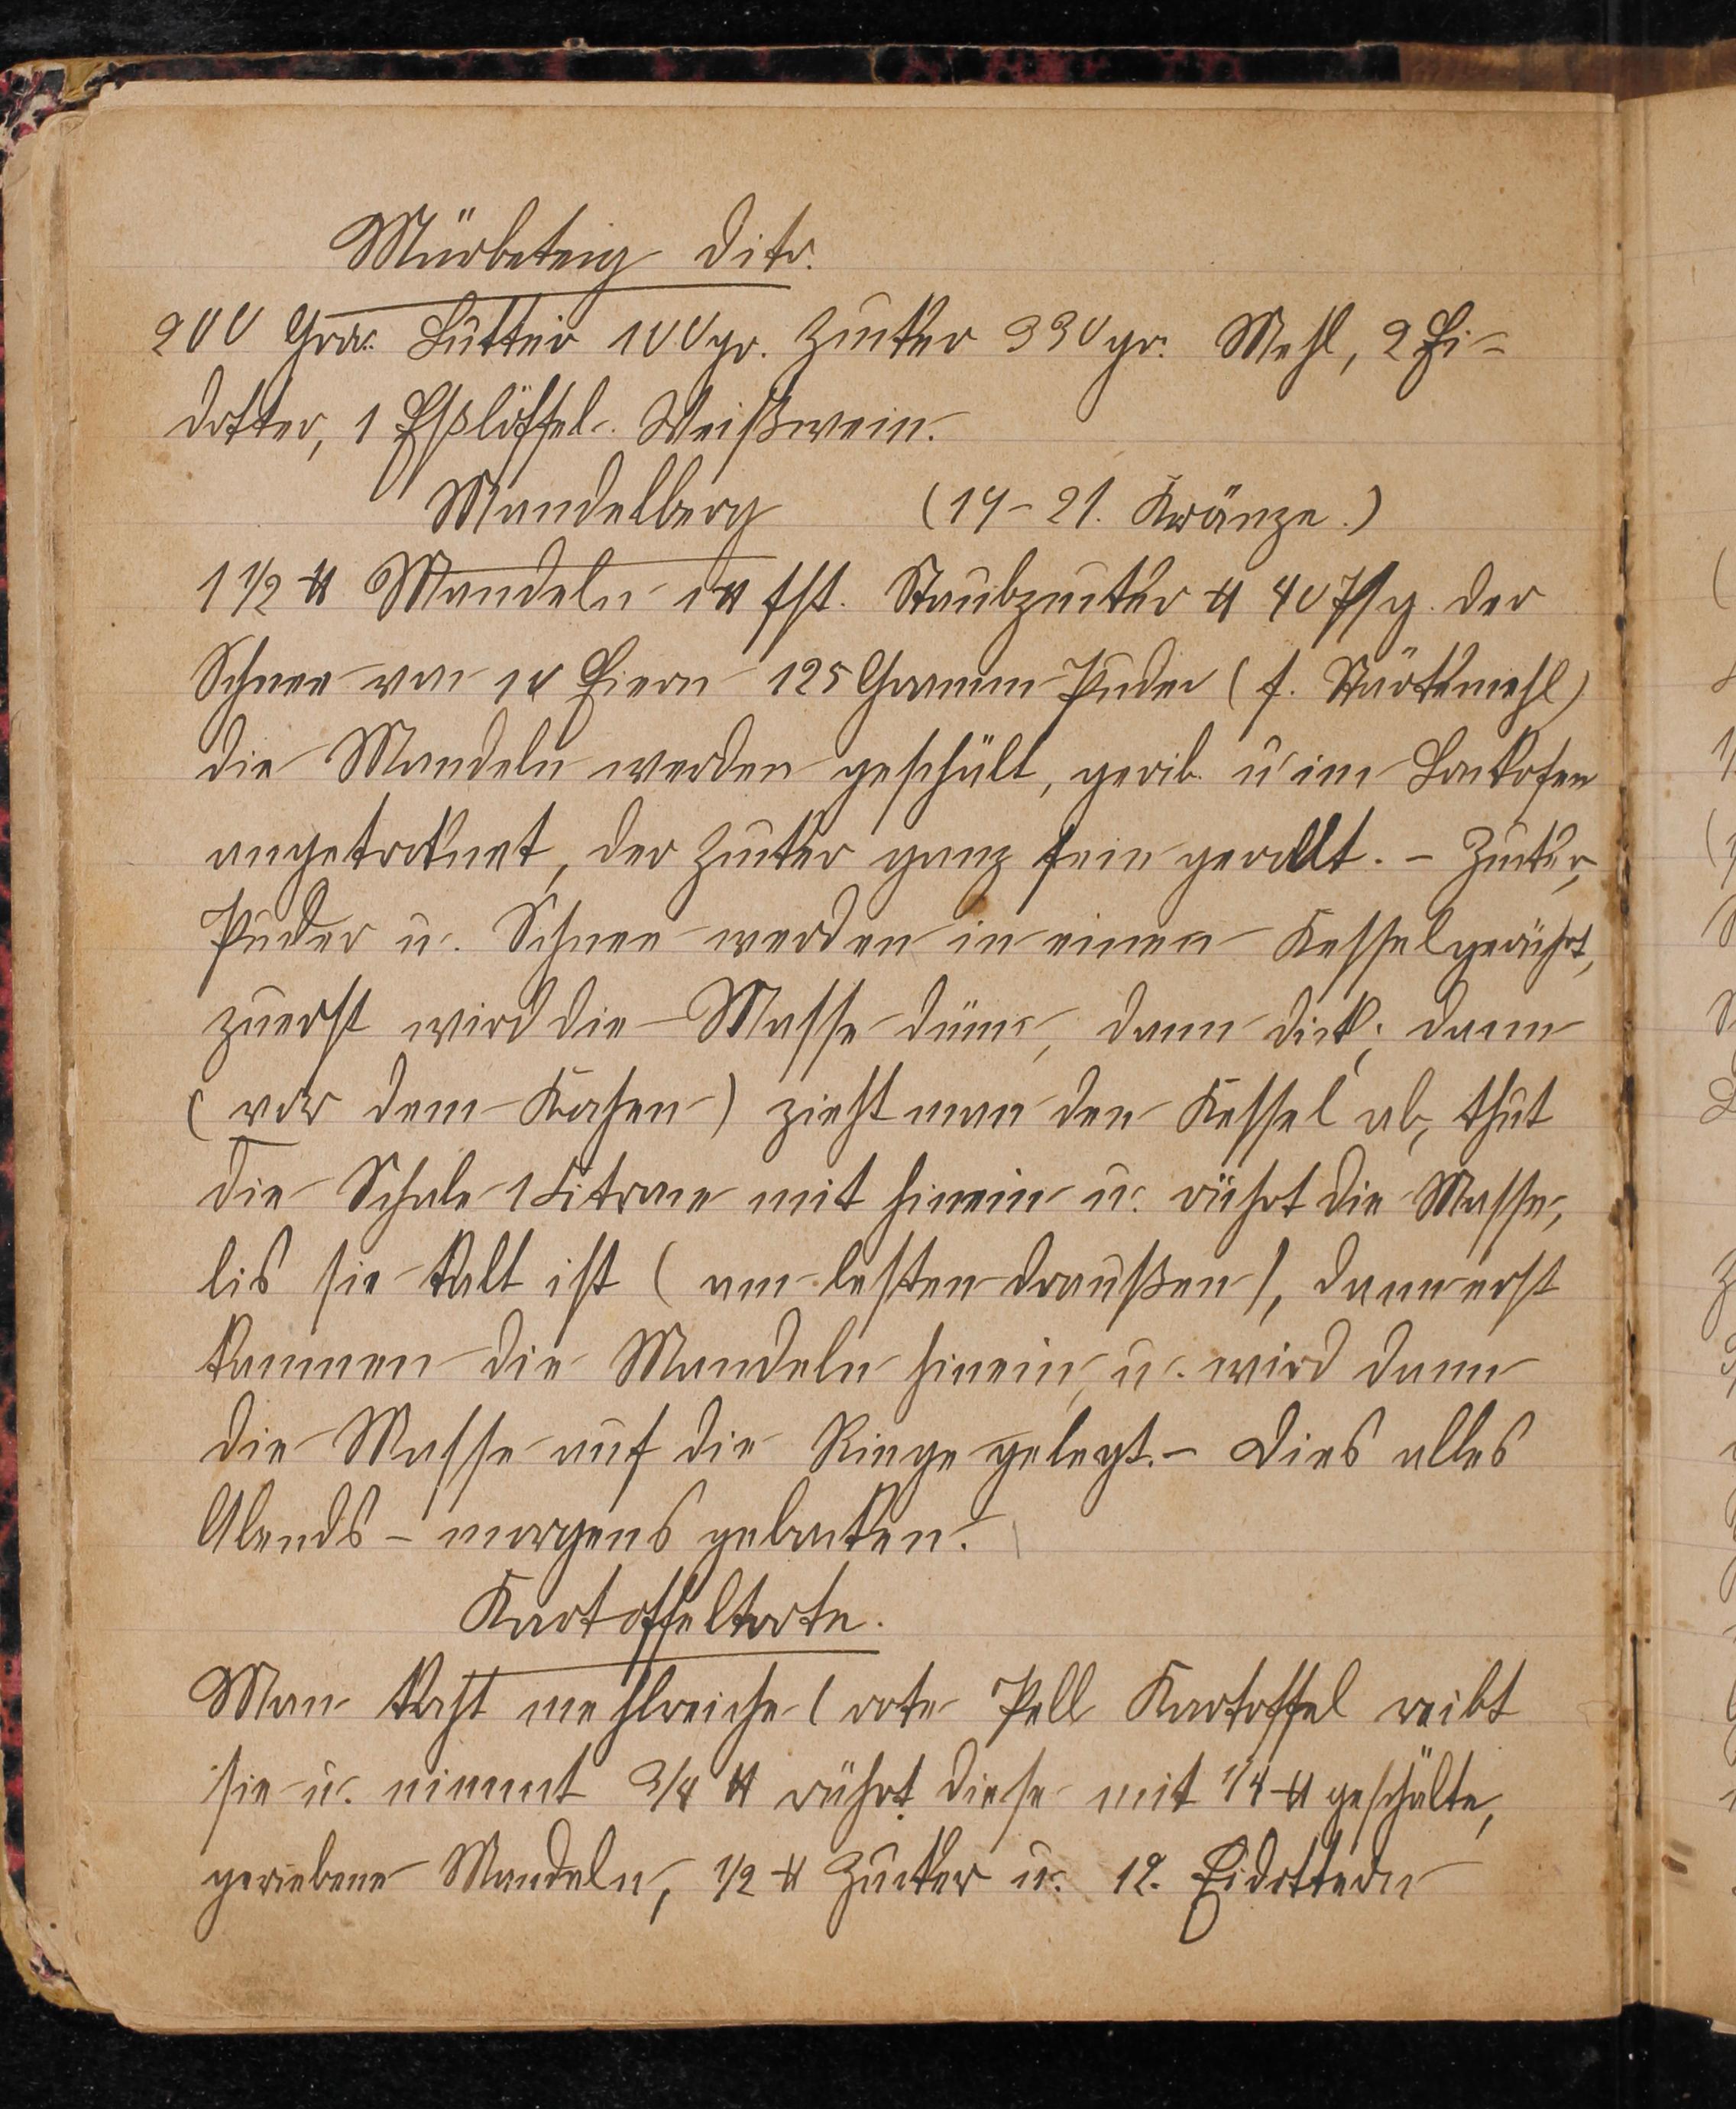 Mürbeteig dito.
200 Gra. Butter 100 gr. Zucker 330 gr. Mehl, 2 Ei-
dotter, 1 Eßlöffel Weißwein.
Mandelberg (14-21. Kränze.)
1 1/2 ℔ Mandeln 1 ℔ fst. Staubzucker ℔ 40 Pfg. der
Schnee von 10 Eiern 125 Gramm Puder (f. Stärkemehl)
die Mandeln werden geschält, gerib. u im Backofen
angetroknet, der Zucker ganz fein gerollt. - Zucker,
Puder u. Schnee werden in einen Kessel gerührt,
zuerst wird die Masse dünn, dann dick; dann
(vor dem Kochen) zieht man den Kessel ab, thut
die Schale 1 Citrone mit hinein u. rührt die Masse,
bis sie kalt ist (am besten draußen), dann erst
kommen die Mandeln hinein, u. wird dann
die Masse auf die Ringe gelegt. - Dies alles
Abends - morgens gebacken.
Kartoffeltorte.
Man kocht mehlreiche (rote Pell Kartoffel reibt
sie u. nimmt 3/4 ℔ rührt diese mit 1/4 ℔ geschälte,
geriebene Mandeln, 1/2 ℔ Zucker u. 12. Eidottern